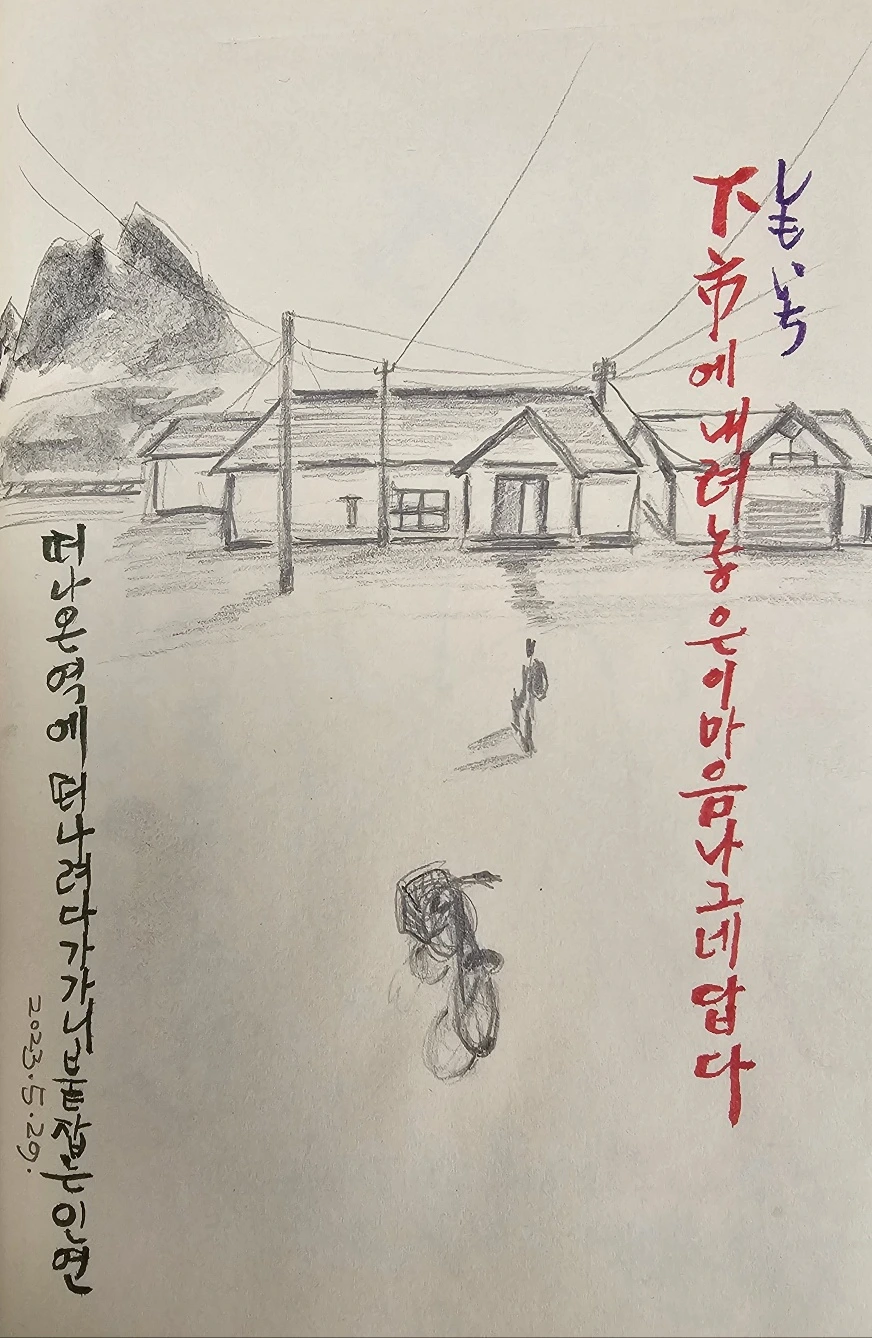 しもいち
下市에내려놓은이마음나그네압다
떠나온역에 떠나려다가가니붙잡는인연
2023.5.29.